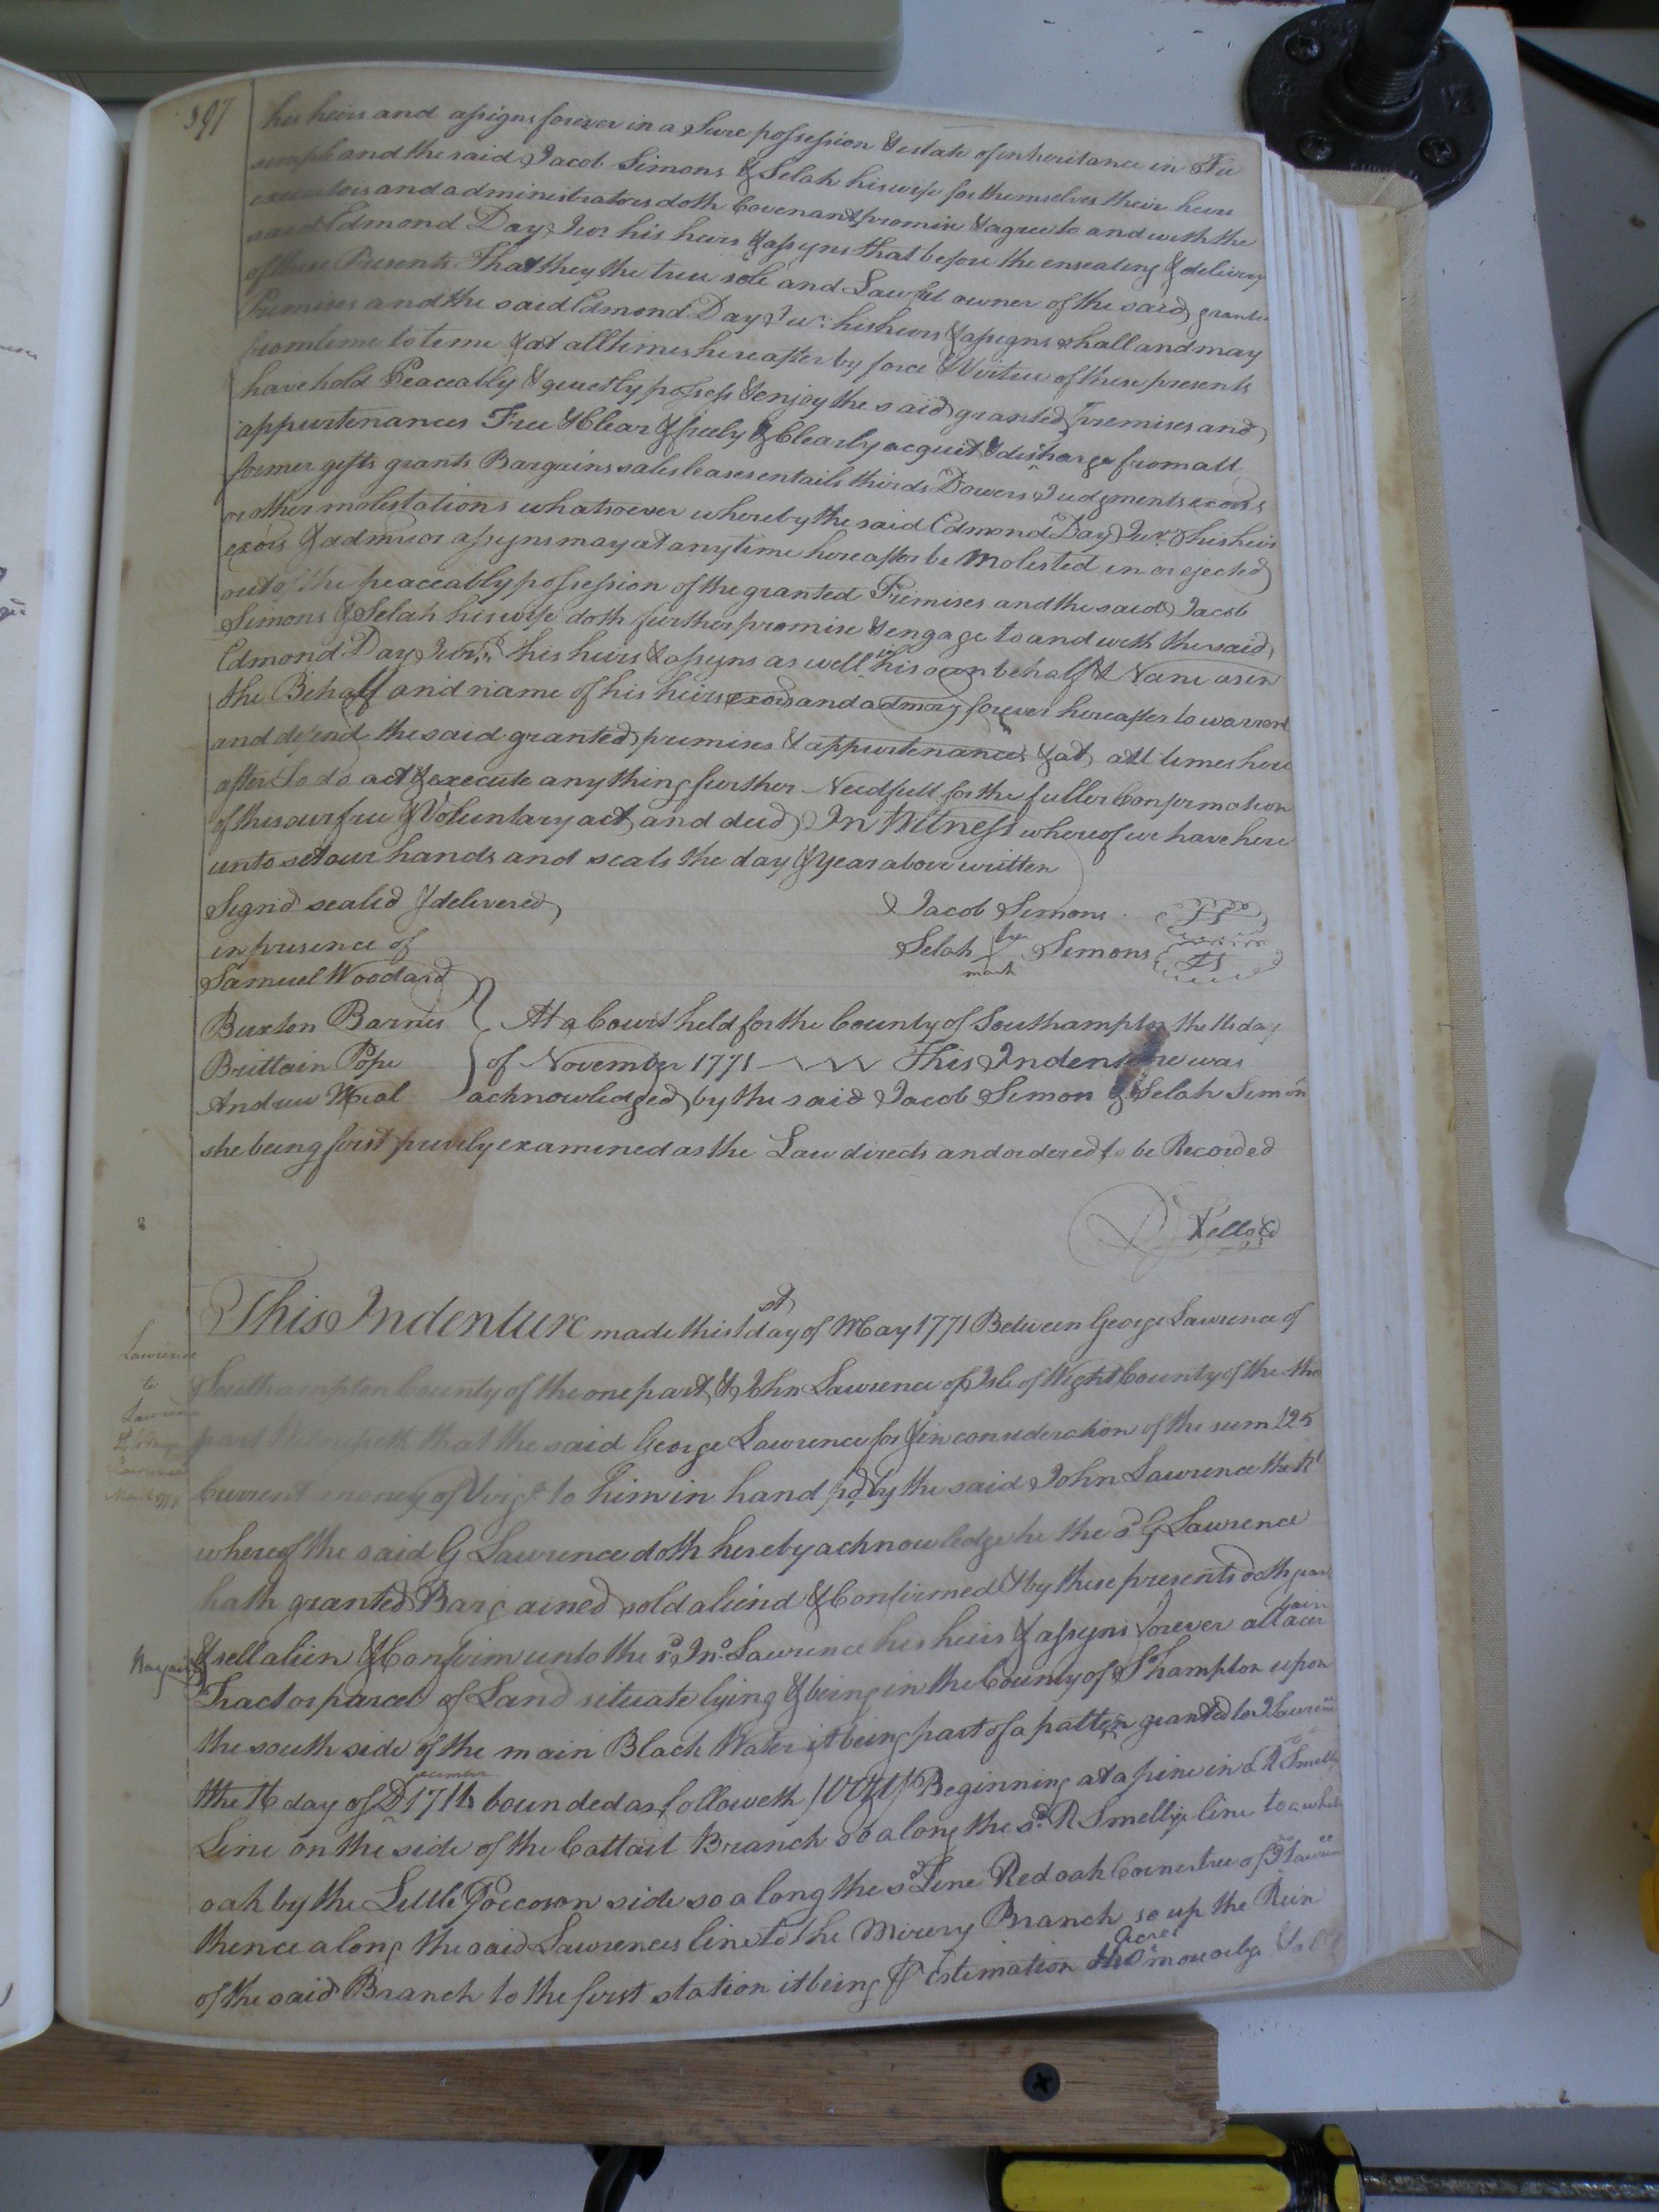 397
his heirs and assigns forever in a Sure possession & estate of inheritance in Fee
simple and the said Jacob Simons & Selah his wife for themselves their heirs
executors and administrators doth Covenant promise & agree to and with the
said Edmond Day Junr. his heirs & assigns that before the ensealing & delivery
of these Presents That they the true sole and Lawful owner of the said granted
Premises and the said Edmond Day Jur. his heirs & assigns shall and may
from time to time & at all times hereafter by force & Virtue of these presents
have hold Peaceably & quietly possess & enjoy the said granted premises and
appurtenances Free & Clear & freely & Clearly acquit & discharge from all
former gifts grants Bargains sales leases entails thirds Dowers Judgments exors
or other molestations whatsoever whereby the said Edmond Day Jur. his heirs
exors & admrs or assigns may at any time hereafter be Molested in or ejected
out of the peaceably possession of the granted Premises and the said Jacob
Simons & Selah his wife doth further promise & engage to and with the said
Edmond Day Junr. his heirs & assigns as well in his own behalf & Name as in
the Behalf and name of his heirs exors and admors forever hereafter to warrant
and defend the said granted premises & appurtenances & at all times here
after to do act & execute any thing further Needfull for the fuller Confirmation
of this our free & Voluntary act and deed In Witness whereof we have here
unto set our hands and seals the day & year above written
Signd seald & delivered Jacob Simons LS
in presence of Selah her Simons LS
mark
Samuel Woodard
Buxton Barnes At a Court held for the County of Southampton the 14 day
Brittain Pope of November 1771 This Indenture was
Andrew Meal acknowledged by the said Jacob Simon & Selah Simon
she being first privily examined as the Law directs and ordered to be Recorded
Kello
Lawrence
to
Lawrence
This Indenture made this 1st day of May 1771 Between George Lawrence of
Southampton County of the one part & John Lawrence of Isle of Wight County of the other
part Witnesseth that the said George Lawrence for & in consideration of the sum 125
Current money of Virga. to him in hand pd by the said John Lawrence the Rt
whereof the said G Lawrence doth hereby acknowledge he the sd G Lawrence
hath granted Bargained sold aliend & Confirmed & by these presents doth
& sell alien & Confirm unto the sd Jno. Lawrence his heirs & assigns forever a certain
Tract or parcel of Land situate lying & being in the County of Shampton upon
the south side of the main Black Water it being part of a patten granted to J Lawrence
the 16 day of December 1714 bounded as followeth (Viz) Beginning at a pine in R Smelly
Line on the side of the Cattail Branch so along the sd. R Smellys line to a white
oak by the Little Poccoson side so along the sd Line Red oak Corner tree of J Lawrence
thence along the said Lawrences line to the Mirery Branch so up the Run
of the said Branch to the first station it being by Estimation Acres more or less